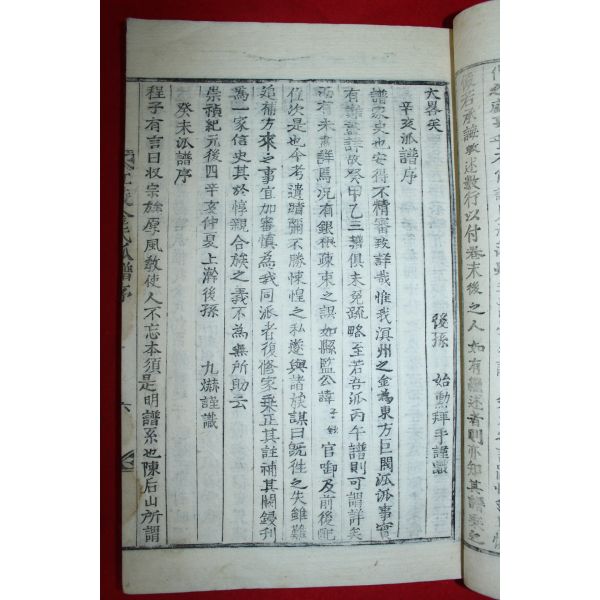 後石承誨畧述數行以付卷末後之人如有繼述者則亦知其譜系之
大畧矣
後孫 始勳拜手謹識
辛亥派譜序
譜家史也安得不精審致詳哉惟我溟州之金為東方巨閥派派事實
有難盡詳故癸甲乙三譜俱未免疏略至若吾派丙午譜則可謂詳矣
而有未盡詳焉況有銀根踈東之誤如縣監公諱子鉉官啣及前後配
位次是也今考遺蹟彌不勝悚惶之私遂與諸族謀曰旣徃之失雖難
追補方來之事宜加審慎為我同派者復修家乘正其註補其闕鋟刊
為一家信史其於惇親合族之義不為無所助云
崇禎紀元後四辛亥仲夏上澣後孫 九爀謹識
癸未派譜序
程子有言曰收宗族厚風敎使人不忘本須是明譜系也陳后山所謂
金氏派譜序
六